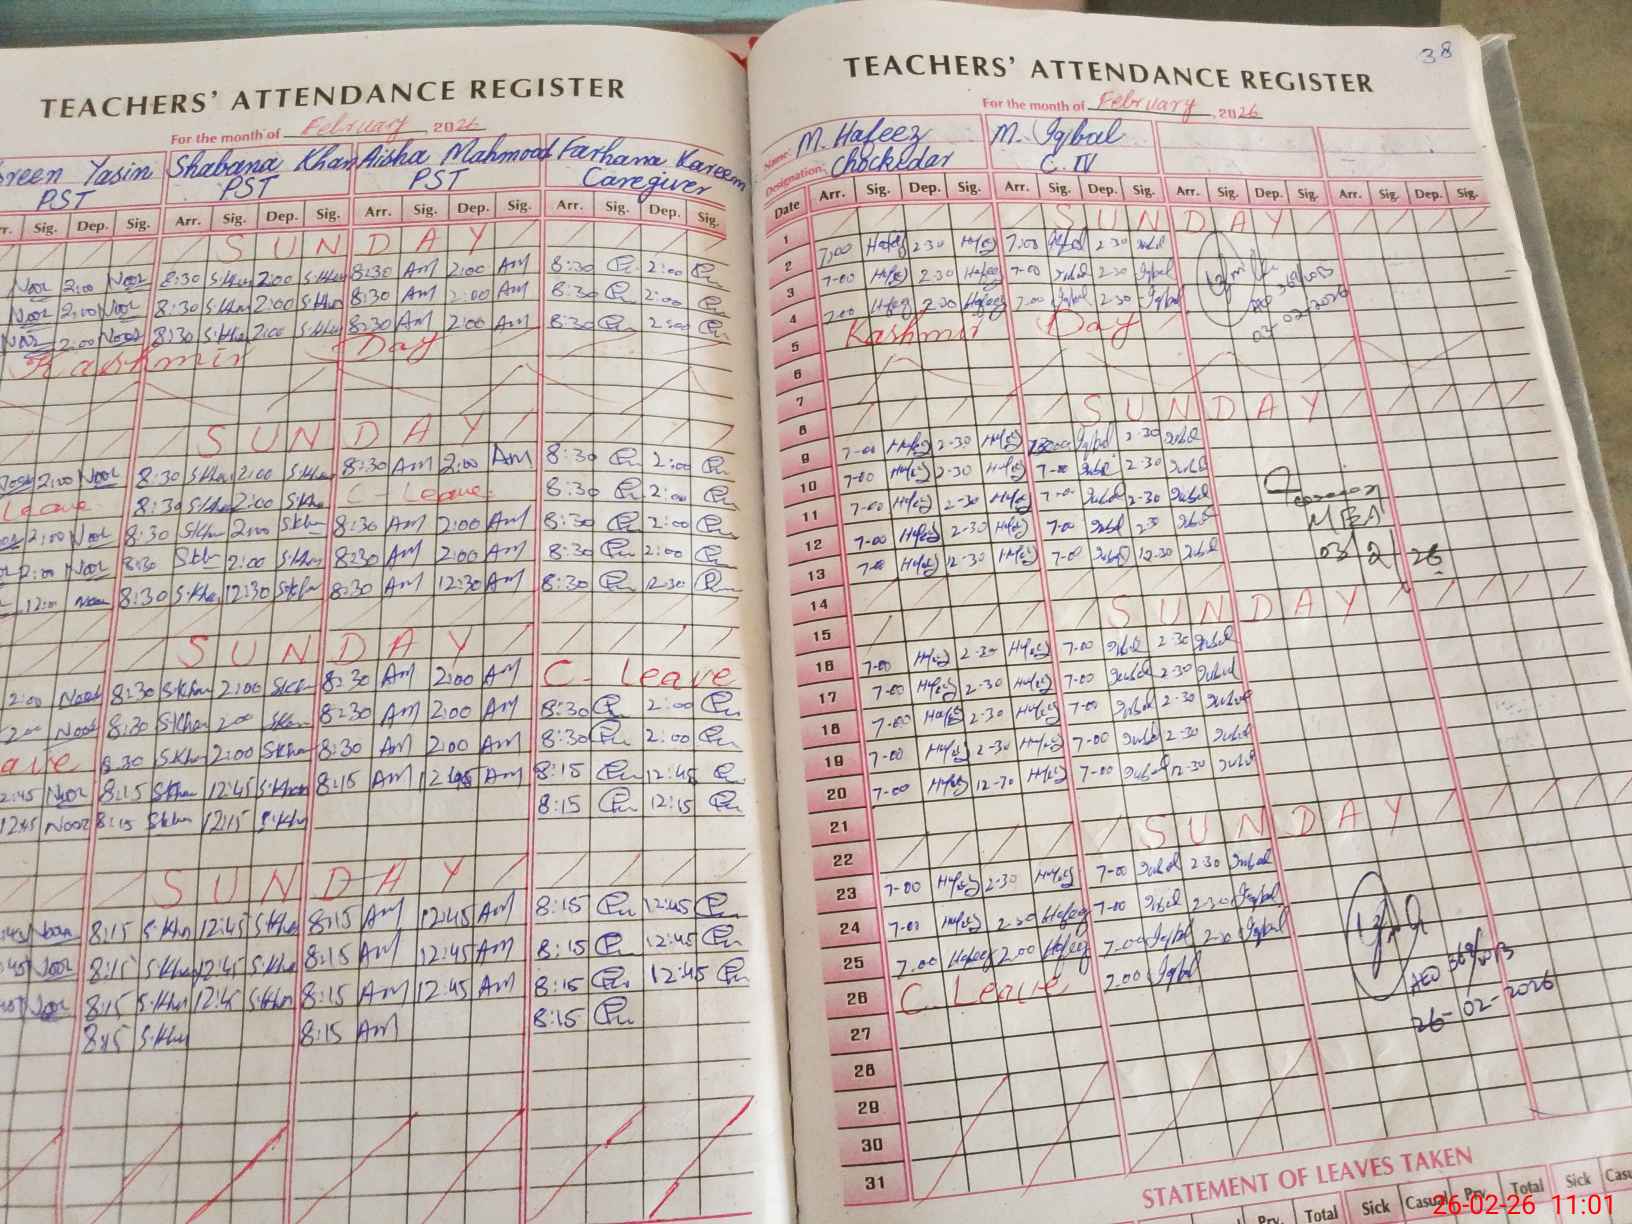 TEACHERS' ATTENDANCE REGISTER
For the month of February, 2026
reen Yasin Shabana Khan Aisha Mahmood Farhana Kareem
PST PST PST Caregiver
Sig. Dep. Sig. Arr. Sig. Dep. Sig. Arr. Sig. Dep. Sig. Arr. Sig. Dep. Sig.
SUNDAY
Noor 2:00 Noor 8:30 S.Khan 2:00 S.Khan 8:30 AM 2:00 AM 8:30 2:00
Noor 2:00 Noor 8:30 S.Khan 2:00 S.Khan 8:30 AM 2:00 AM 8:30 2:00
Noor 2:00 Noor 8:30 S.Khan 2:00 S.Khan 8:30 AM 2:00 AM 8:30 2:00
Kashmir Day
SUNDAY
2:00 Noor 8:30 S.Khan 2:00 S.Khan 8:30 AM 2:00 AM 8:30 2:00
Leave 8:30 S.Khan 2:00 S.Khan C-Leave 8:30 2:00
2:00 Noor 8:30 S.Khan 2:00 S.Khan 8:30 AM 2:00 AM 8:30 2:00
2:00 Noor 8:30 S.Khan 2:00 S.Khan 8:30 AM 2:00 AM 8:30 2:00
Noor 8:30 S.Khan 12:30 S.Khan 8:30 AM 12:30 AM 8:30 12:30
SUNDAY
2:00 Noor 8:30 S.Khan 2:00 S.Khan 8:30 AM 2:00 AM C-Leave
2:00 Noor 8:30 S.Khan 2:00 S.Khan 8:30 AM 2:00 AM 8:30 2:00
ave 8:30 S.Khan 2:00 S.Khan 8:30 AM 2:00 AM 8:30 2:00
2:45 Noor 8:15 S.Khan 12:45 S.Khan 8:15 AM 12:45 AM 8:15 12:45
Noor 8:15 S.Khan 12:15 S.Khan 8:15 12:15
SUNDAY
Noor 8:15 S.Khan 12:45 S.Khan 8:15 AM 12:45 AM 8:15 12:45
Noor 8:15 S.Khan 12:45 S.Khan 8:15 AM 12:45 AM 8:15 12:45
Noor 8:15 S.Khan 12:45 S.Khan 8:15 AM 12:45 AM 8:15 12:45
8:15 S.Khan 8:15 AM 8:15
38
TEACHERS' ATTENDANCE REGISTER
For the month of February, 2026
Name: M. Hafeez M. Iqbal
Designation: Chockedar C.IV
Date Arr. Sig. Dep. Sig. Arr. Sig. Dep. Sig. Arr. Sig. Dep. Sig. Arr. Sig. Dep. Sig.
1 SUNDAY
2 7-00 Hafeez 2-30 Hafeez 7-00 Iqbal 2-30 Iqbal
3 7-00 Hafeez 2-30 Hafeez 7-00 Iqbal 2-30 Iqbal
4 7-00 Hafeez 2-30 Hafeez 7-00 Iqbal 2-30 Iqbal
03-02-2026
5 Kashmir Day
6
7
8 SUNDAY
9 7-00 Hafeez 2-30 Hafeez Iqbal 2-30 Iqbal
10 7-00 Hafeez 2-30 Hafeez 7-00 Iqbal 2-30 Iqbal
11 7-00 Hafeez 2-30 Hafeez 7-00 Iqbal 2-30 Iqbal
MEA
12 7-00 Hafeez 2-30 Hafeez 7-00 Iqbal 2-30 Iqbal
03/2/26
13 7-00 Hafeez 12-30 Hafeez 7-00 Iqbal 12-30 Iqbal
14
15 SUNDAY
16 7-00 Hafeez 2-30 Hafeez 7-00 Iqbal 2-30 Iqbal
17 7-00 Hafeez 2-30 Hafeez 7-00 Iqbal 2-30 Iqbal
18 7-00 Hafeez 2-30 Hafeez 7-00 Iqbal 2-30 Iqbal
19 7-00 Hafeez 2-30 Hafeez 7-00 Iqbal 2-30 Iqbal
20 7-00 Hafeez 12-30 Hafeez 7-00 Iqbal 12-30 Iqbal
21
22 SUNDAY
23 7-00 Hafeez 2-30 Hafeez 7-00 Iqbal 2-30 Iqbal
24 7-00 Hafeez 2-30 Hafeez 7-00 Iqbal 2-30 Iqbal
25 7.00 Hafeez 2.00 Hafeez 7-00 Iqbal 2-30 Iqbal
26 C. Leave 7.00 Iqbal
AEO
26-02-2026
27
28
29
30
31
STATEMENT OF LEAVES TAKEN
Prv. Total Sick Casual Prv. Total Sick Casu
26-02-26 11:01